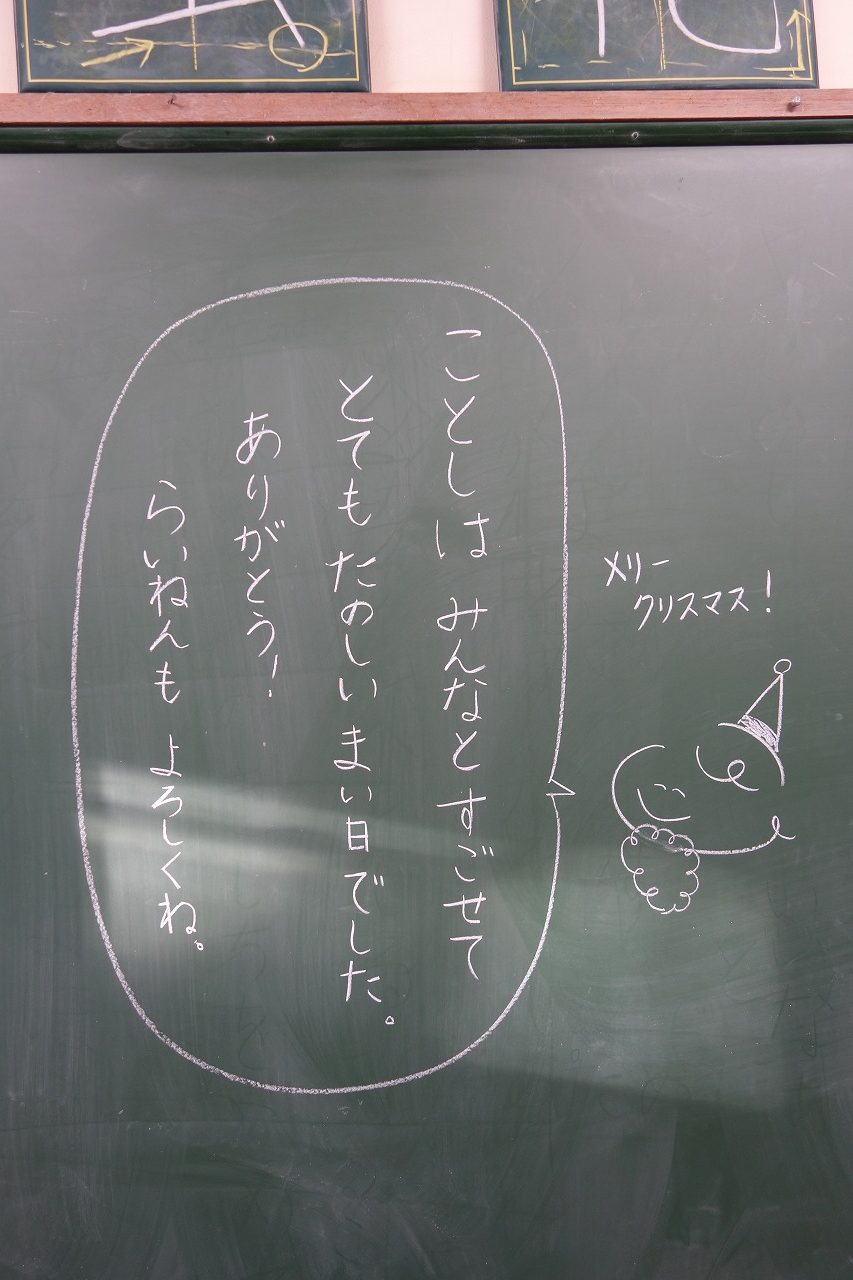 メリー
クリスマス!
ことしは みんなと すごせて
とても たのしい まい日でした。
ありがとう!
らいねんも よろしくね。